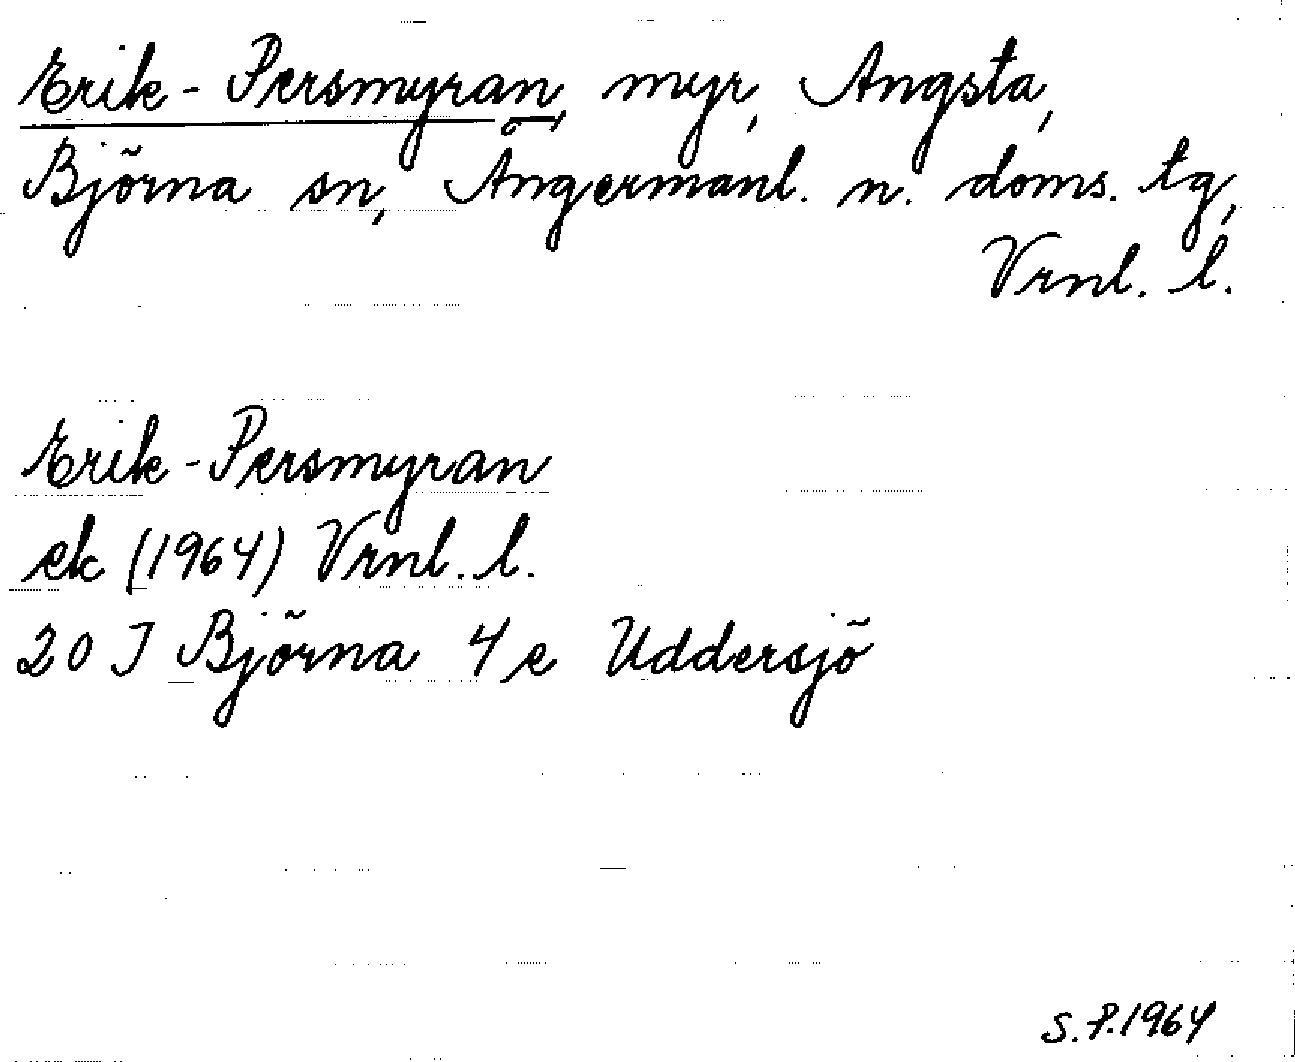 Erik-Persmyran, myr, Angsta,
Björna sn, Ångermanl. n. doms. tg,
Vrnl. l.
Erik-Persmyran
ek (1964) Vrnl. l.
20 J Björna 4 e Uddersjö
S.P.1964